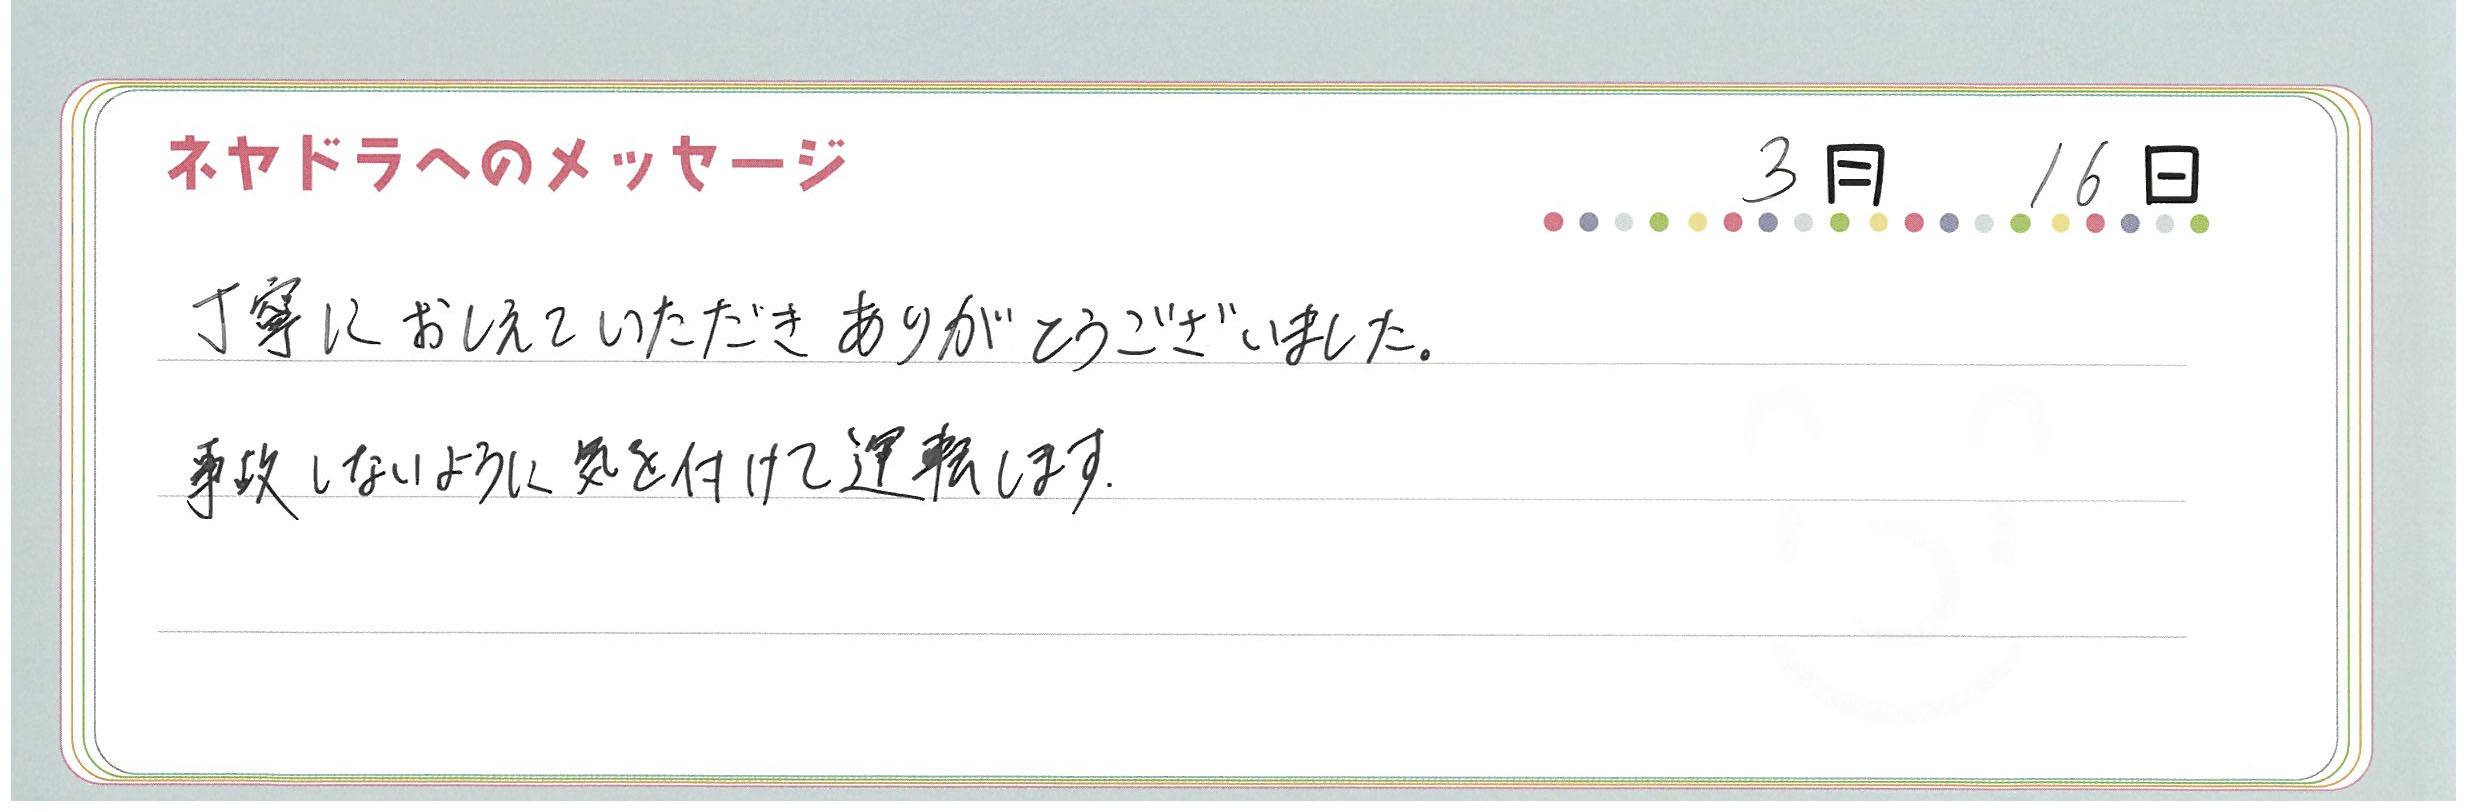 ネヤドラへのメッセージ 3月 16日
丁寧におしえていただきありがとうございました。
事故しないように気を付けて運転します.